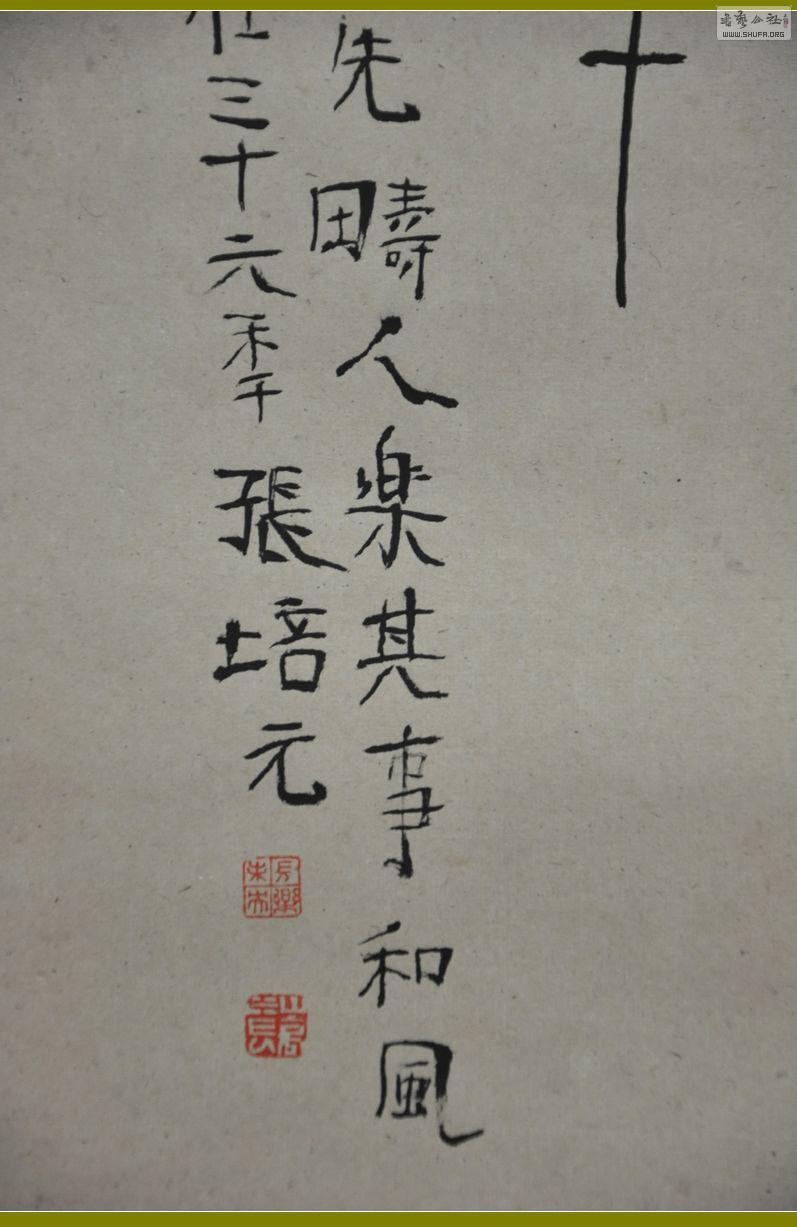 先疇人楽其事和風
三十六季張培元
長樂未央
書藝公社
WWW.SHUFA.ORG